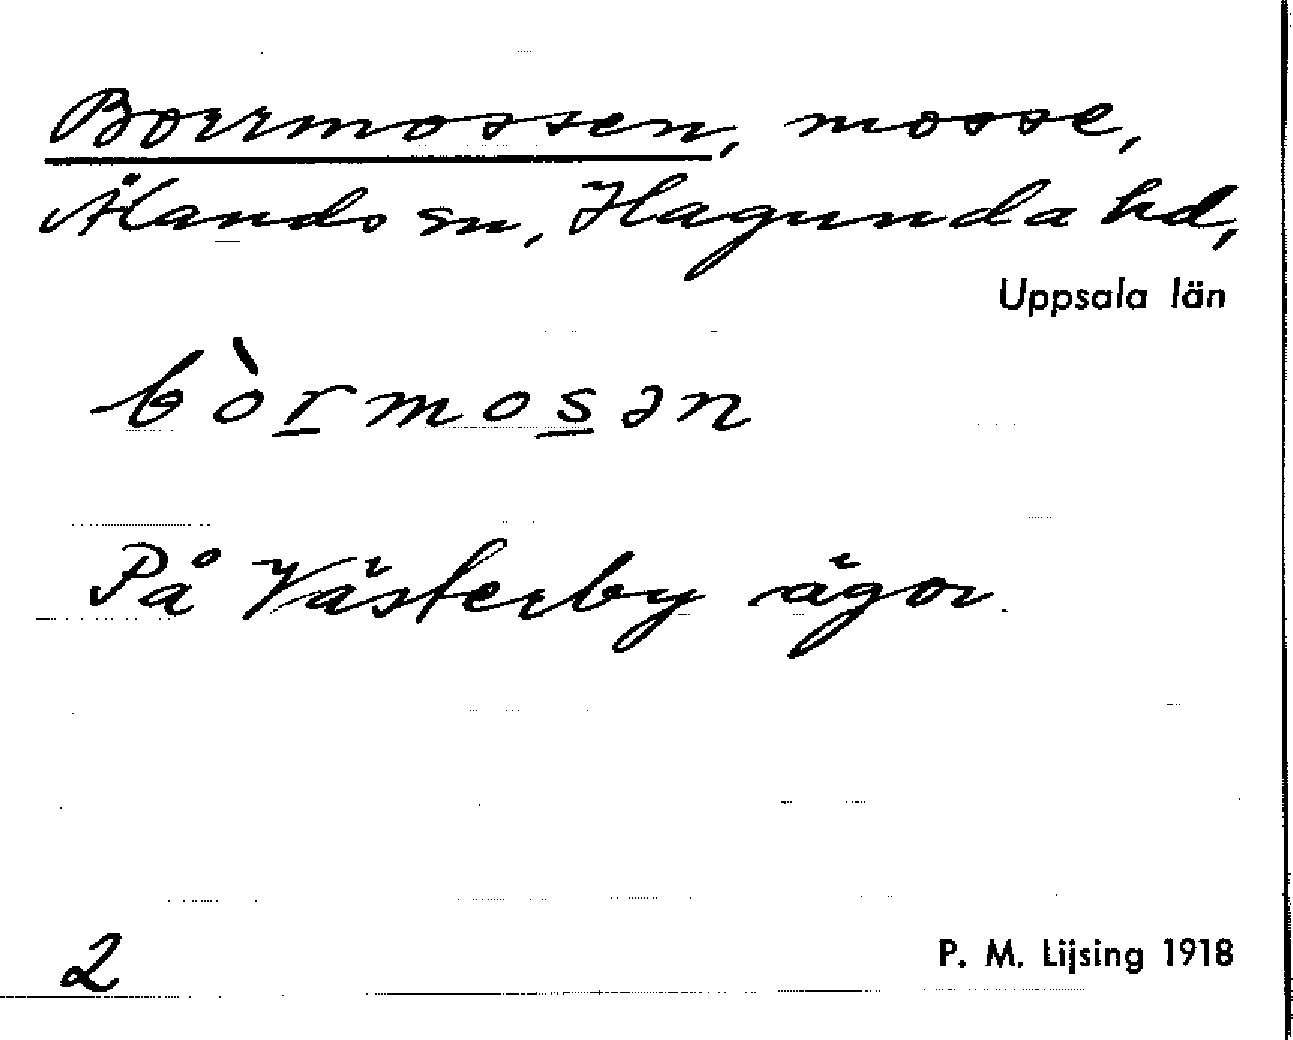 Borrmossen, mosse,
Ålands sn, Hagunda hd,
Uppsala län
bòr̲mos̲ən
På Västerby ägor.
2
P. M. Lijsing 1918